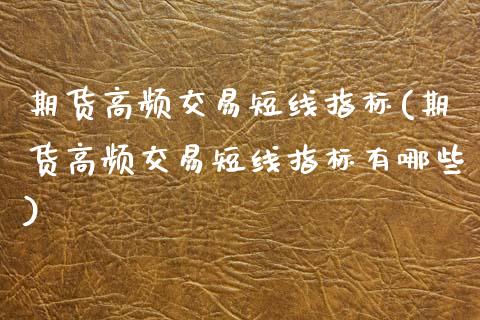 期货高频交易短线指标(期
货高频交易短线指标有哪些
)